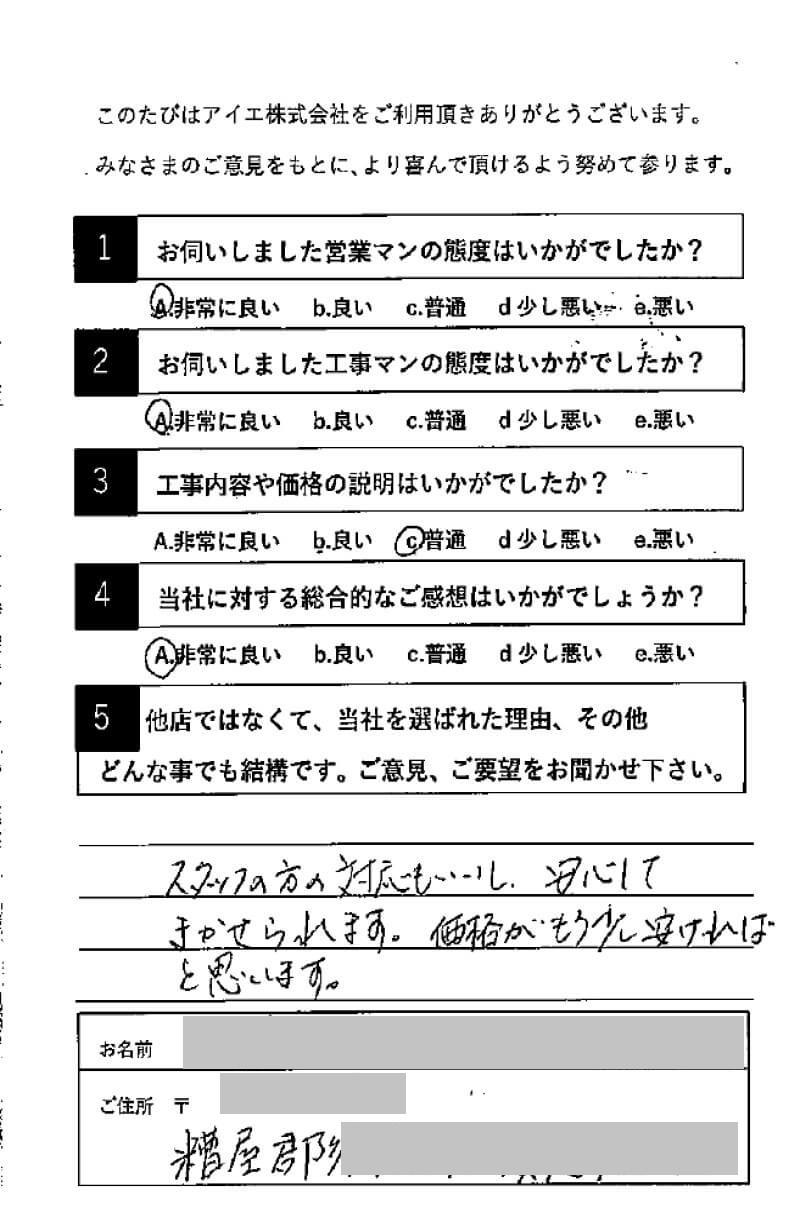 このたびはアイエ株式会社をご利用頂きありがとうございます。
みなさまのご意見をもとに、より喜んで頂けるよう努めて参ります。
1 お伺いしました営業マンの態度はいかがでしたか?
A.非常に良い b.良い c.普通 d少し悪い e.悪い
2 お伺いしました工事マンの態度はいかがでしたか?
A.非常に良い b.良い c.普通 d少し悪い e.悪い
3 工事内容や価格の説明はいかがでしたか?
A.非常に良い b.良い c.普通 d少し悪い e.悪い
4 当社に対する総合的なご感想はいかがでしょうか?
A.非常に良い b.良い c.普通 d少し悪い e.悪い
5 他店ではなくて、当社を選ばれた理由、その他
どんな事でも結構です。ご意見、ご要望をお聞かせ下さい。
スタッフの方の対応もいいし、安心して
まかせられます。価格がもう少し安ければ
と思います。
お名前
ご住所 〒
糟屋郡